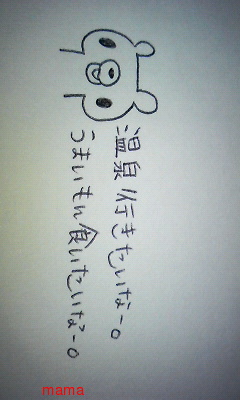 温泉行きたいなー。
うまいもん食いたいなー。
mama